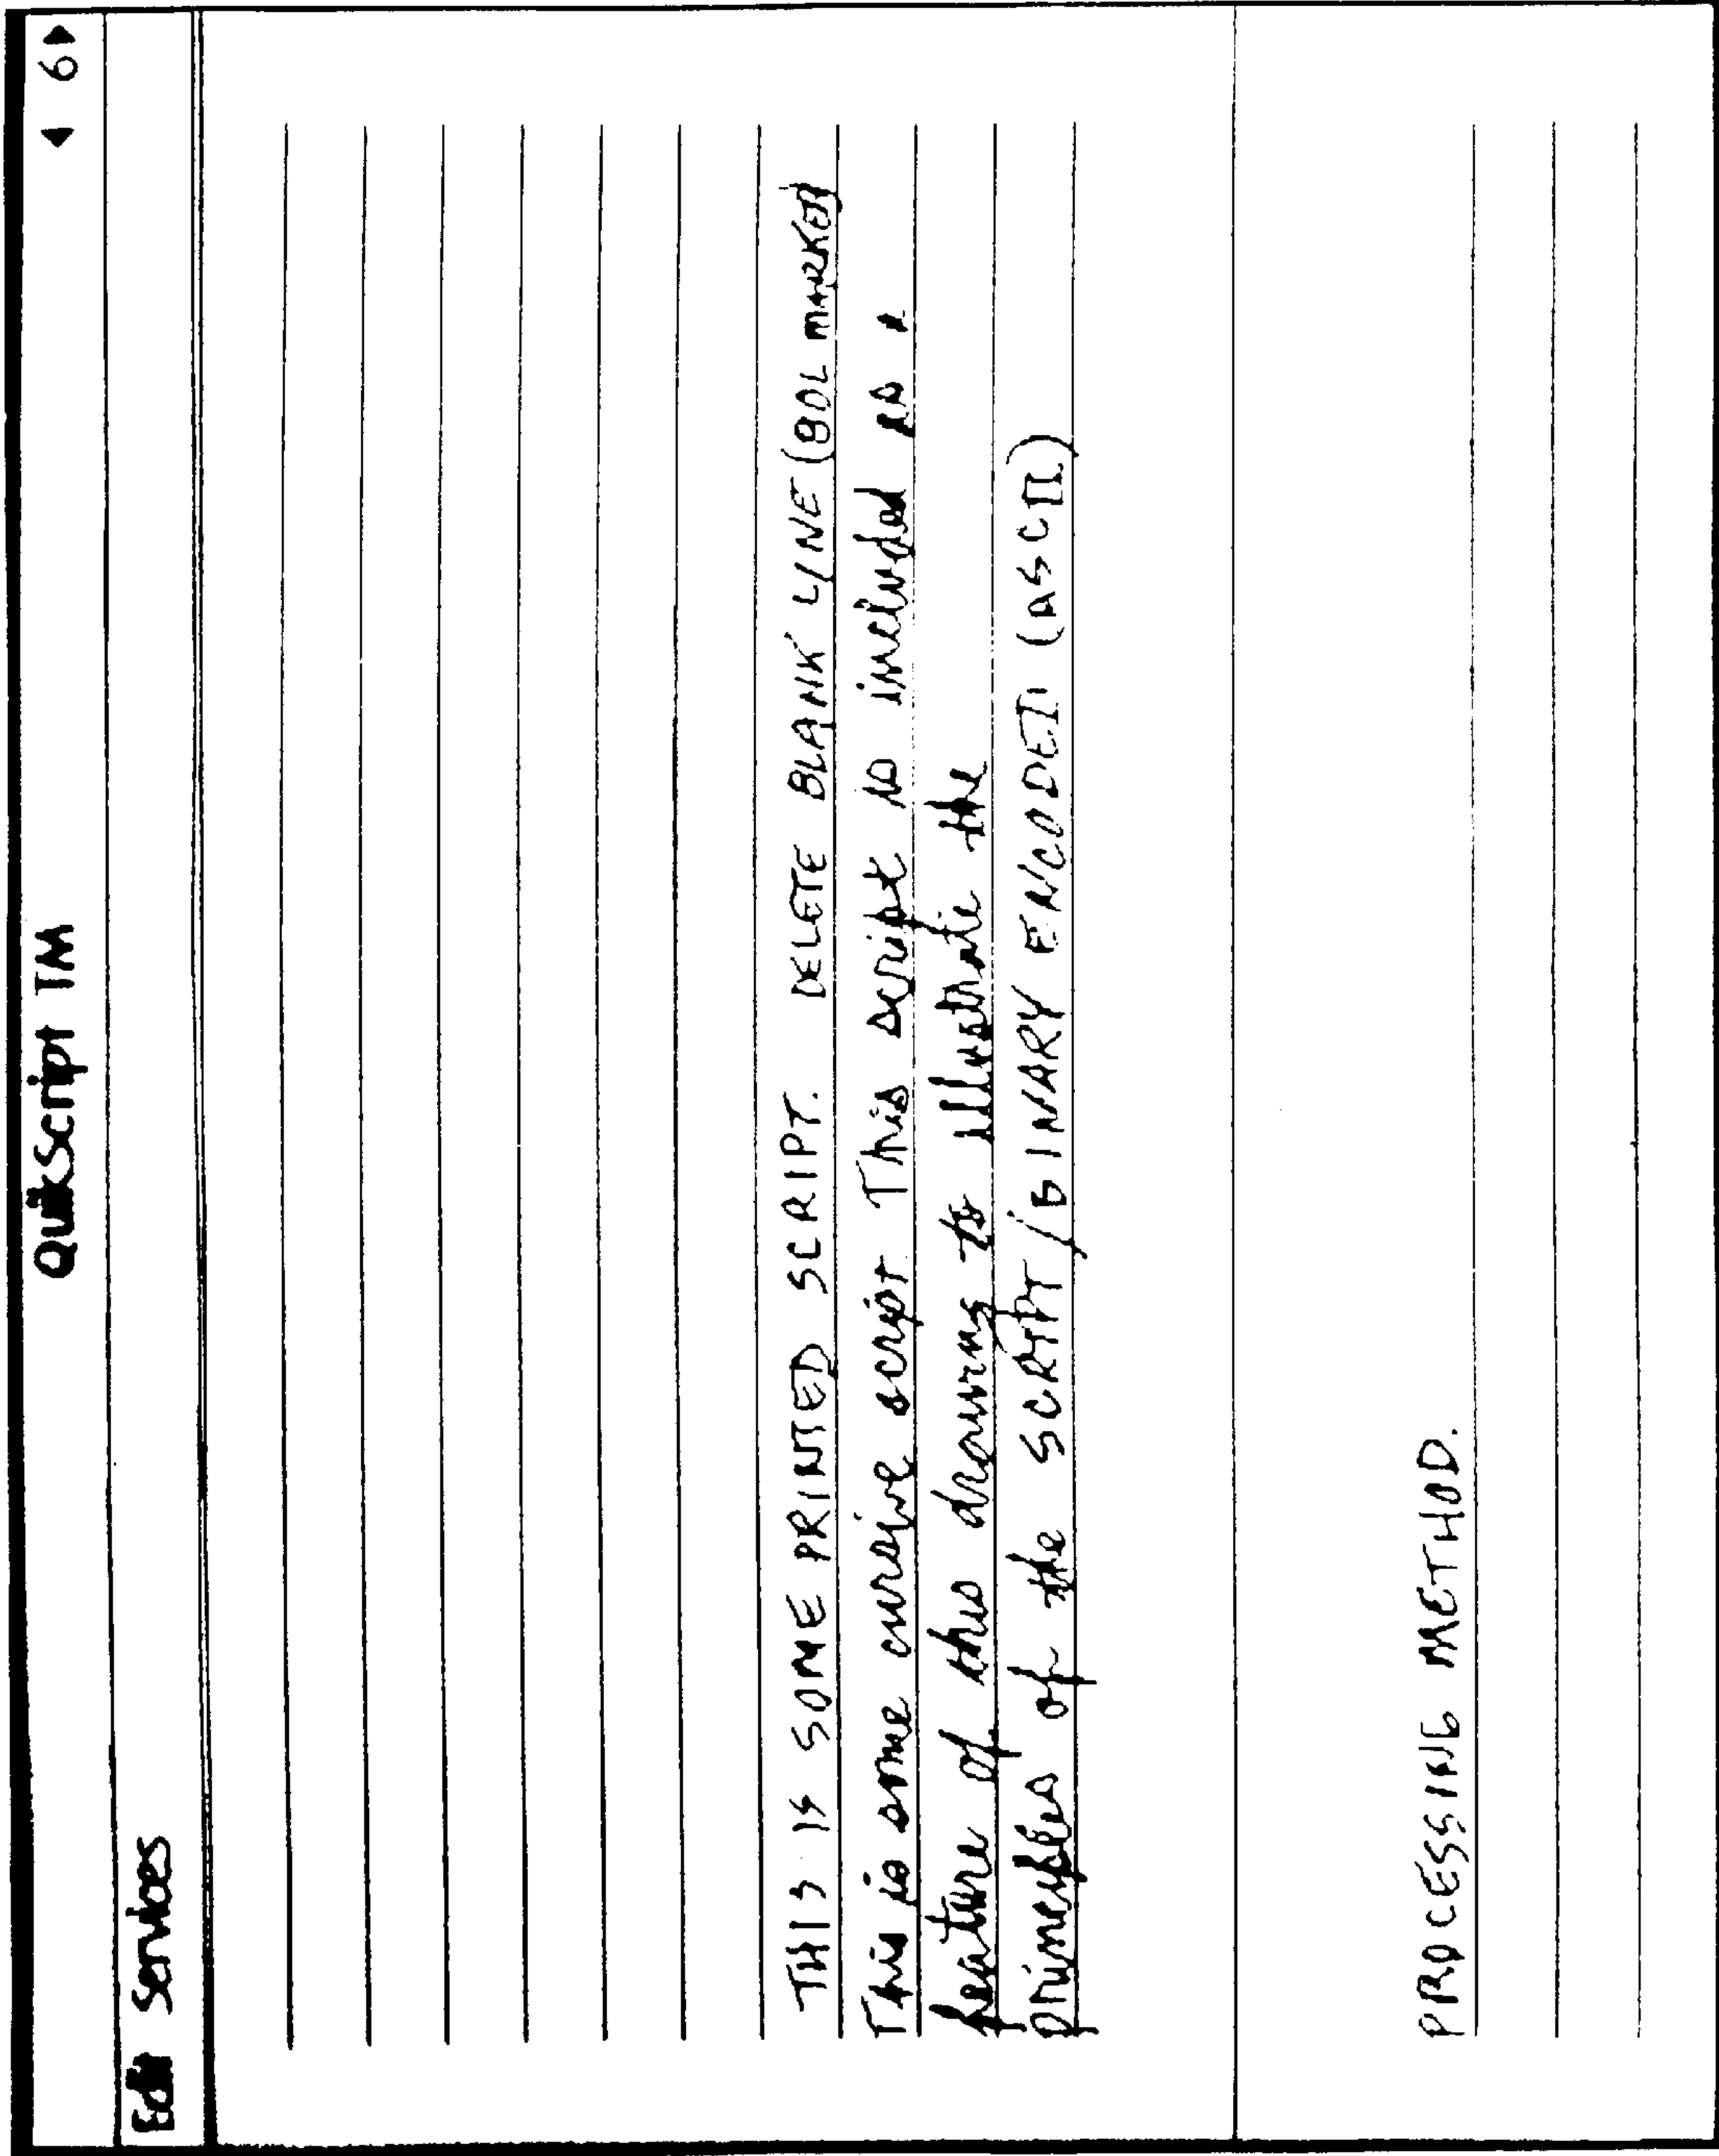 QuikScript TM
◀ 6 ▶
Edit Services
THIS IS SOME PRINTED SCRIPT. DELETE BLANK LINE (BOL MARKER)
This is some cursive script This script is included as a
feature of this drawing to illustrate the
principles of the SCRIPT/BINARY ENCODED (ASCII)
PROCESSING METHOD.